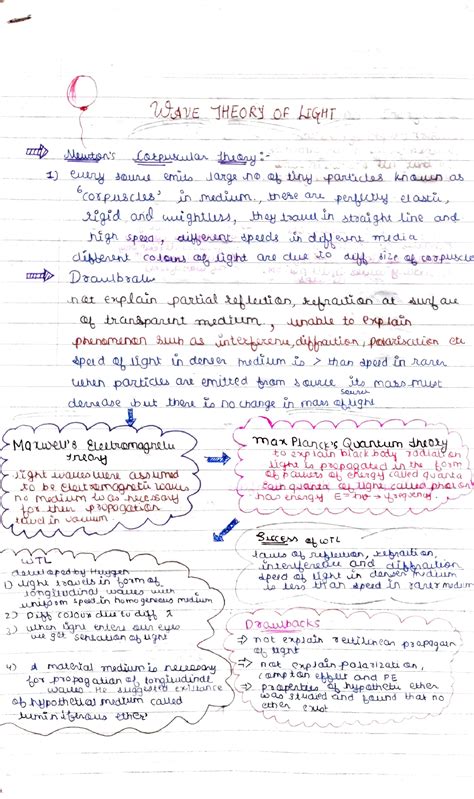 WAVE THEORY OF LIGHT
Newton's Corpuscular Theory:-
1) Every source emits large no. of tiny particles known as
'corpuscles' in medium, these are perfectly elastic,
rigid and weightless, they travel in straight line and
high speed, different speeds in different media
different colours of light are due to diff size of corpuscles
Drawbrawk
not explain partial reflection, refraction at surface
of transparent medium, unable to explain
phenomenon such as interference, diffraction, polarisation etc
speed of light in denser medium is > than speed in rarer
when particles are emitted from source its mass must
source
decrease but there is no change in mass of light
Maxwell's Electromagnetic
Theory
light waves were assumed
to be electromagnetic waves
no medium was necessary
for their propagation
travel in vacuum
Max Planck's Quantum Theory
to explain black body radiation
light is propagated in the form
of packets of energy called quanta
each quanta of light called photon
has energy E = hν → frequency.
WTL
developed by Huygen
1) light travels in form of
longitudinal waves with
uniform speed in homogeneous medium
2) Diff colour due to diff λ
3) when light enters our eyes
we get sensation of light
4) A material medium is necessary
for propagation of longitudinal
waves. He suggested existance
of hypothetical medium called
luminiferous ether
Success of WTL
laws of reflection, refraction,
interference and diffraction
speed of light in denser medium
is less than speed in rarer medium
Drawbacks
→ not explain rectilinear propagation
of light
→ not explain polarization,
compton effect and PE
→ properties of hypothetic ether
was studied and found that no
ether exist